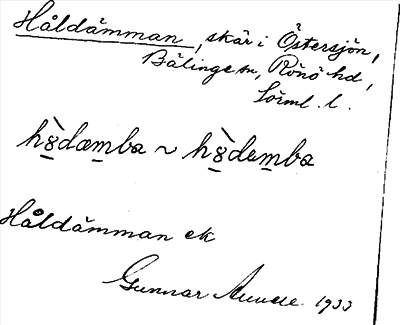 Håldämman, skär i Östersjön,
Bälinge sn, Rönö hd,
Sörml. l.
hò̲dæm̲ba ~ hò̲dem̲ba
Håldämman ek
Gunnar 1933